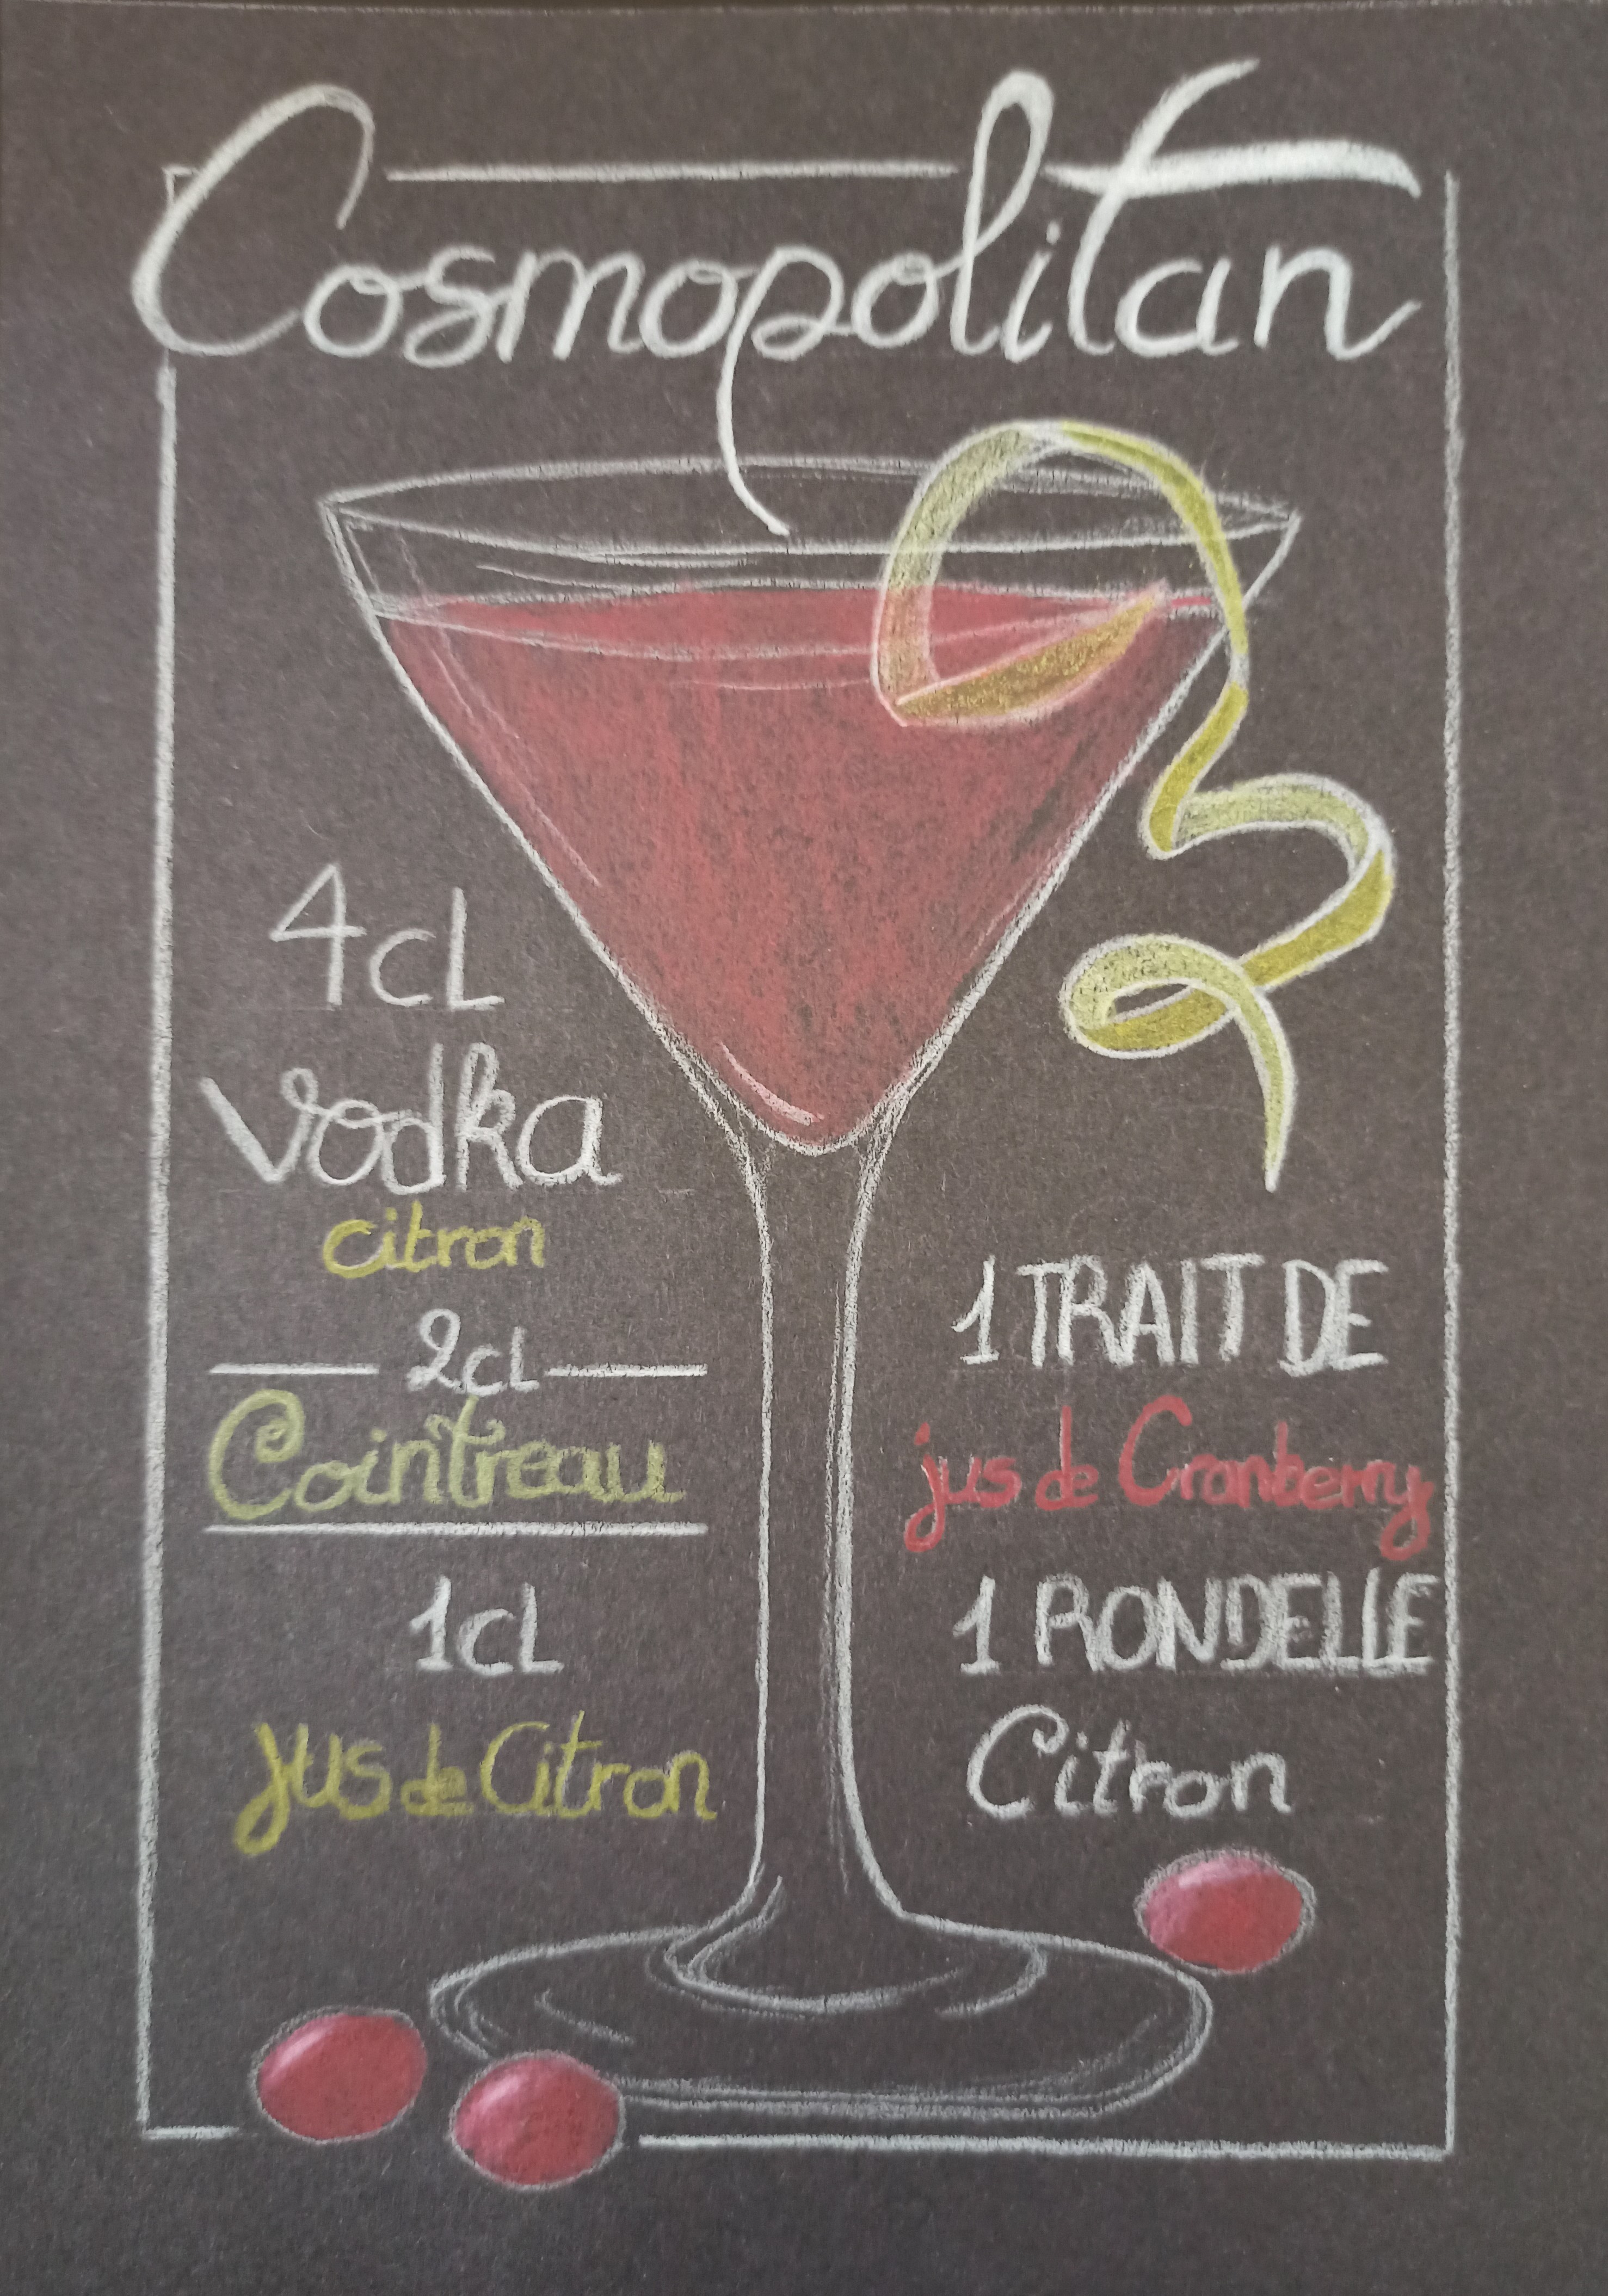 Cosmopolitan
4cL
Vodka
citron
2cL
Cointreau
1cL
jus de Citron
1 TRAIT DE
jus de Cranberry
1 RONDELLE
Citron